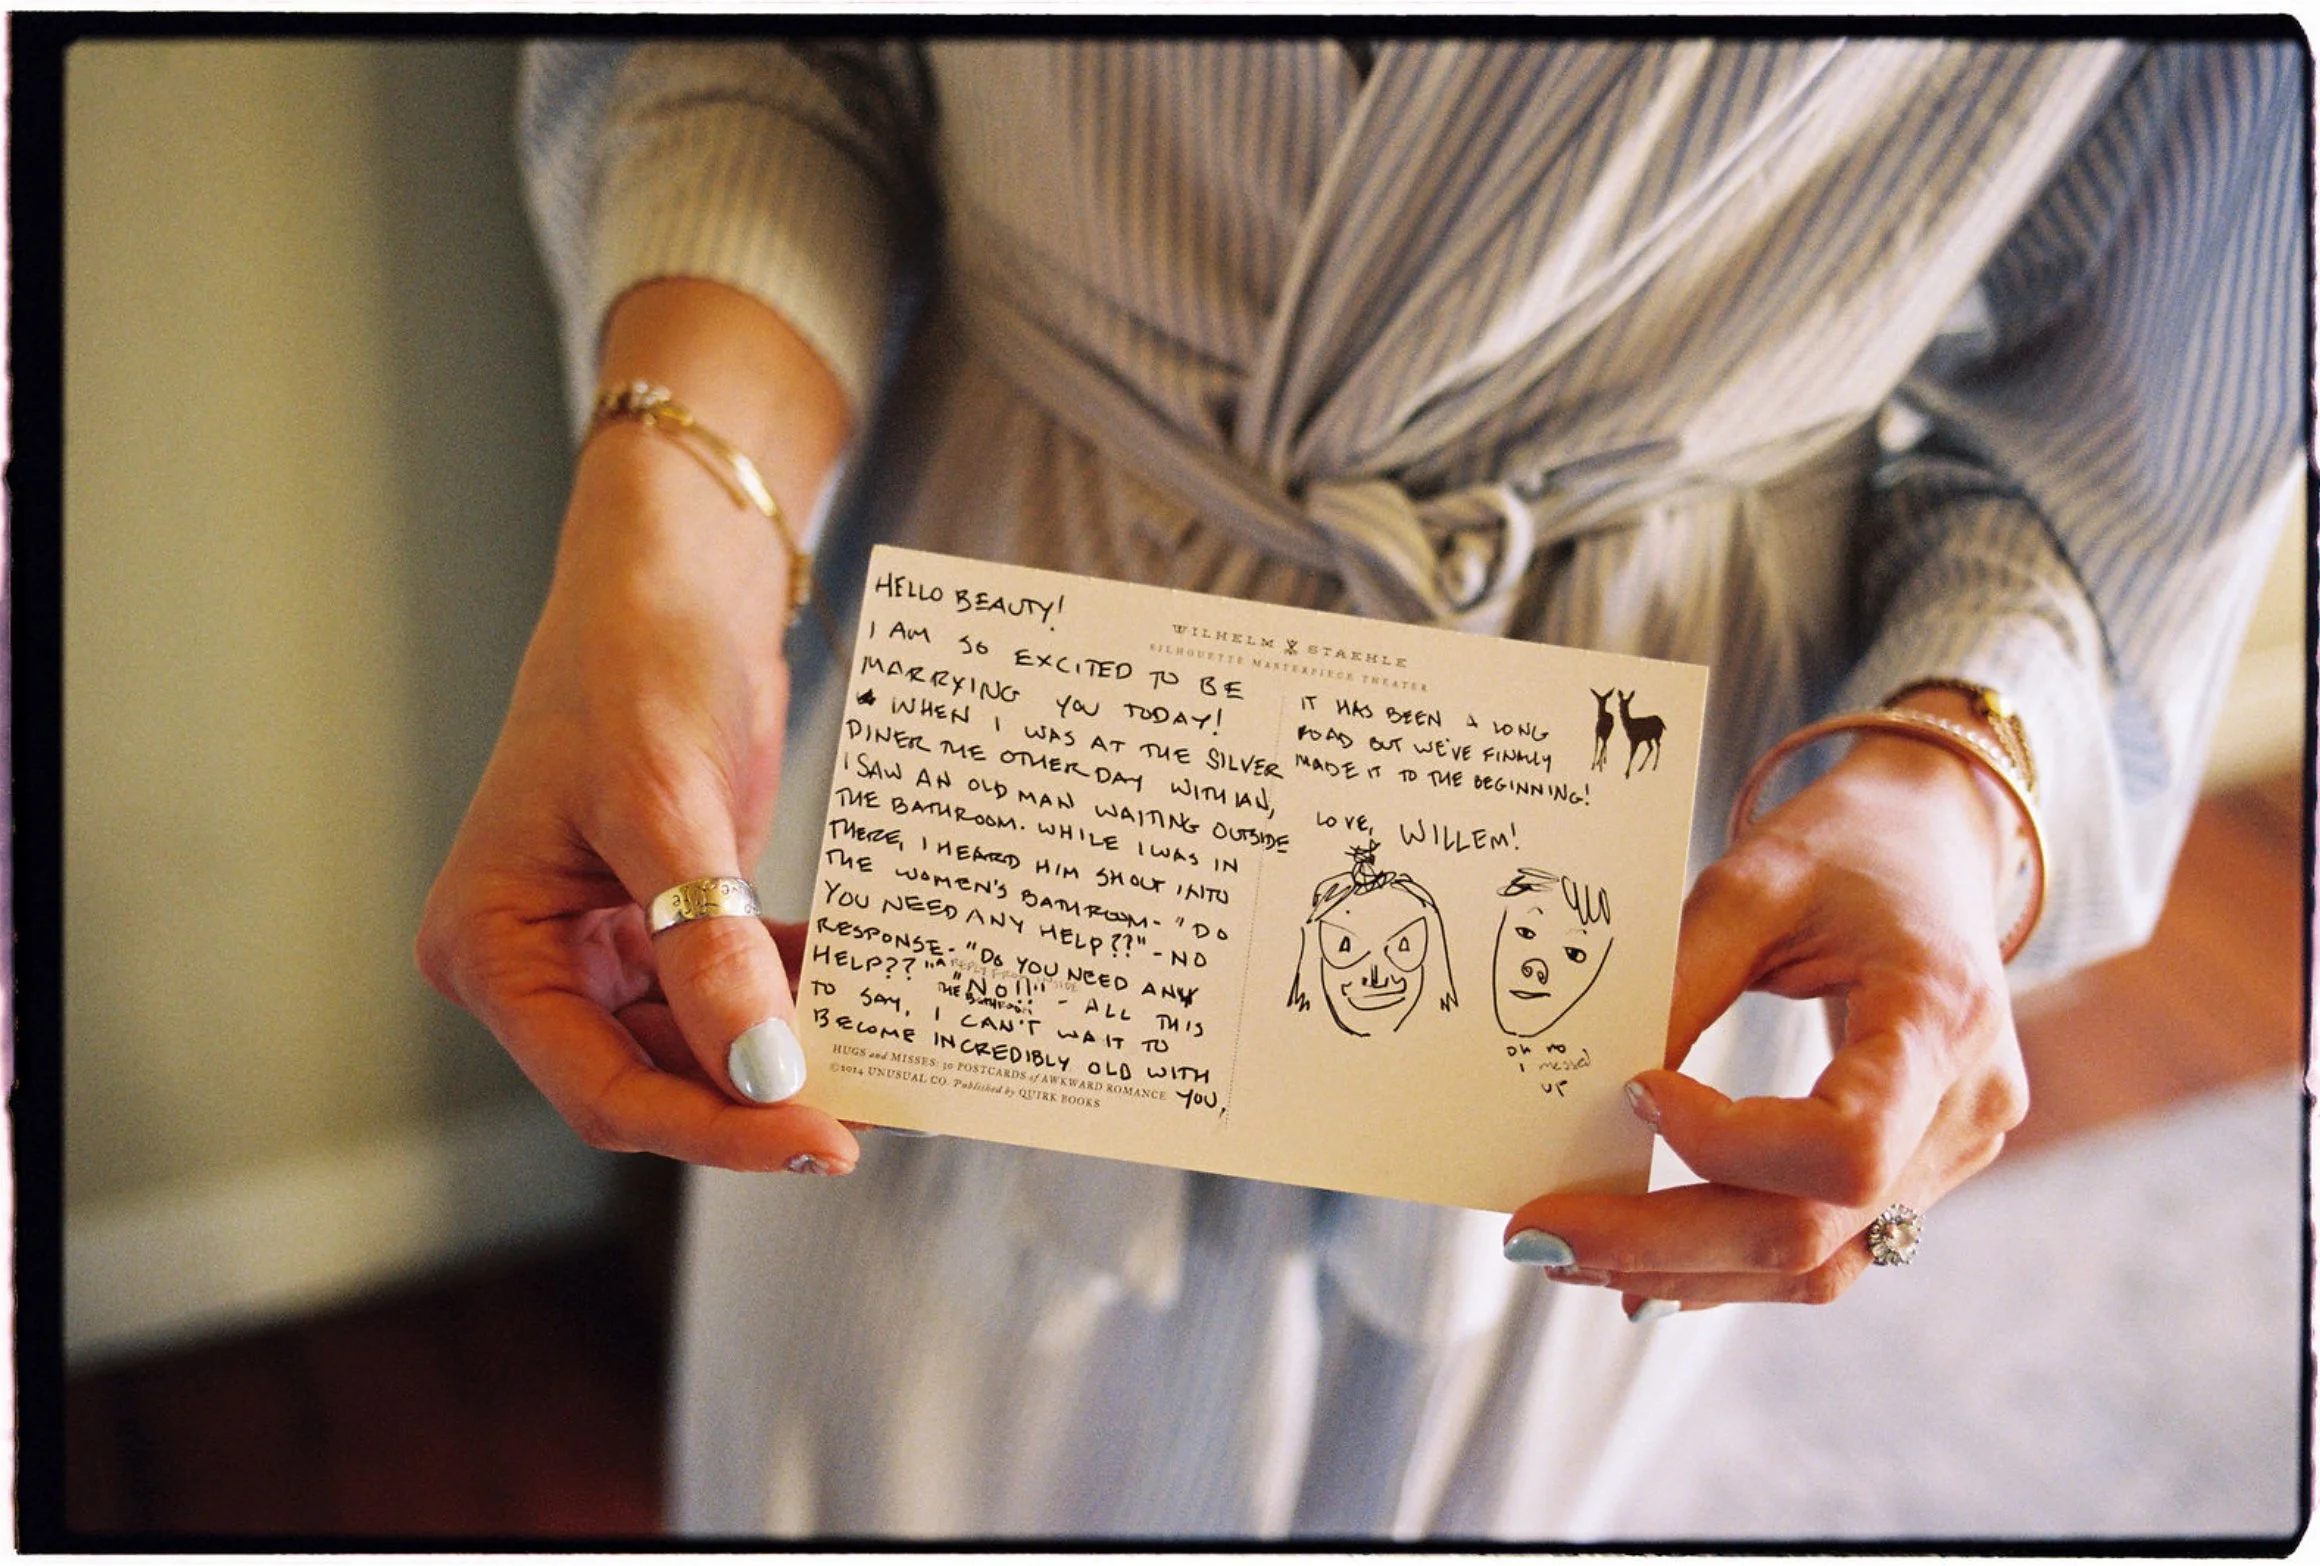 HELLO BEAUTY!
I AM SO EXCITED TO BE
MARRYING YOU TODAY!
WHEN I WAS AT THE SILVER
DINER THE OTHER DAY WITH IAN,
I SAW AN OLD MAN WAITING OUTSIDE
THE BATHROOM. WHILE I WAS IN
THERE, I HEARD HIM SHOUT INTO
THE WOMEN'S BATHROOM- "DO
YOU NEED ANY HELP??" - NO
RESPONSE. "DO YOU NEED ANY
HELP??" A REPLY FROM INSIDE
THE BATHROOM: "NO!!" - ALL THIS
TO SAY, I CAN'T WAIT TO
BECOME INCREDIBLY OLD WITH
YOU,
HUGS and MISSES: 30 POSTCARDS of AWKWARD ROMANCE
©2014 UNUSUAL CO. Published by QUIRK BOOKS
WILHELM STAEHLE
SILHOUETTE MASTERPIECE THEATER
IT HAS BEEN A LONG
ROAD BUT WE'VE FINALLY
MADE IT TO THE BEGINNING!
LOVE, WILLEM!
OH NO
I messed
UP